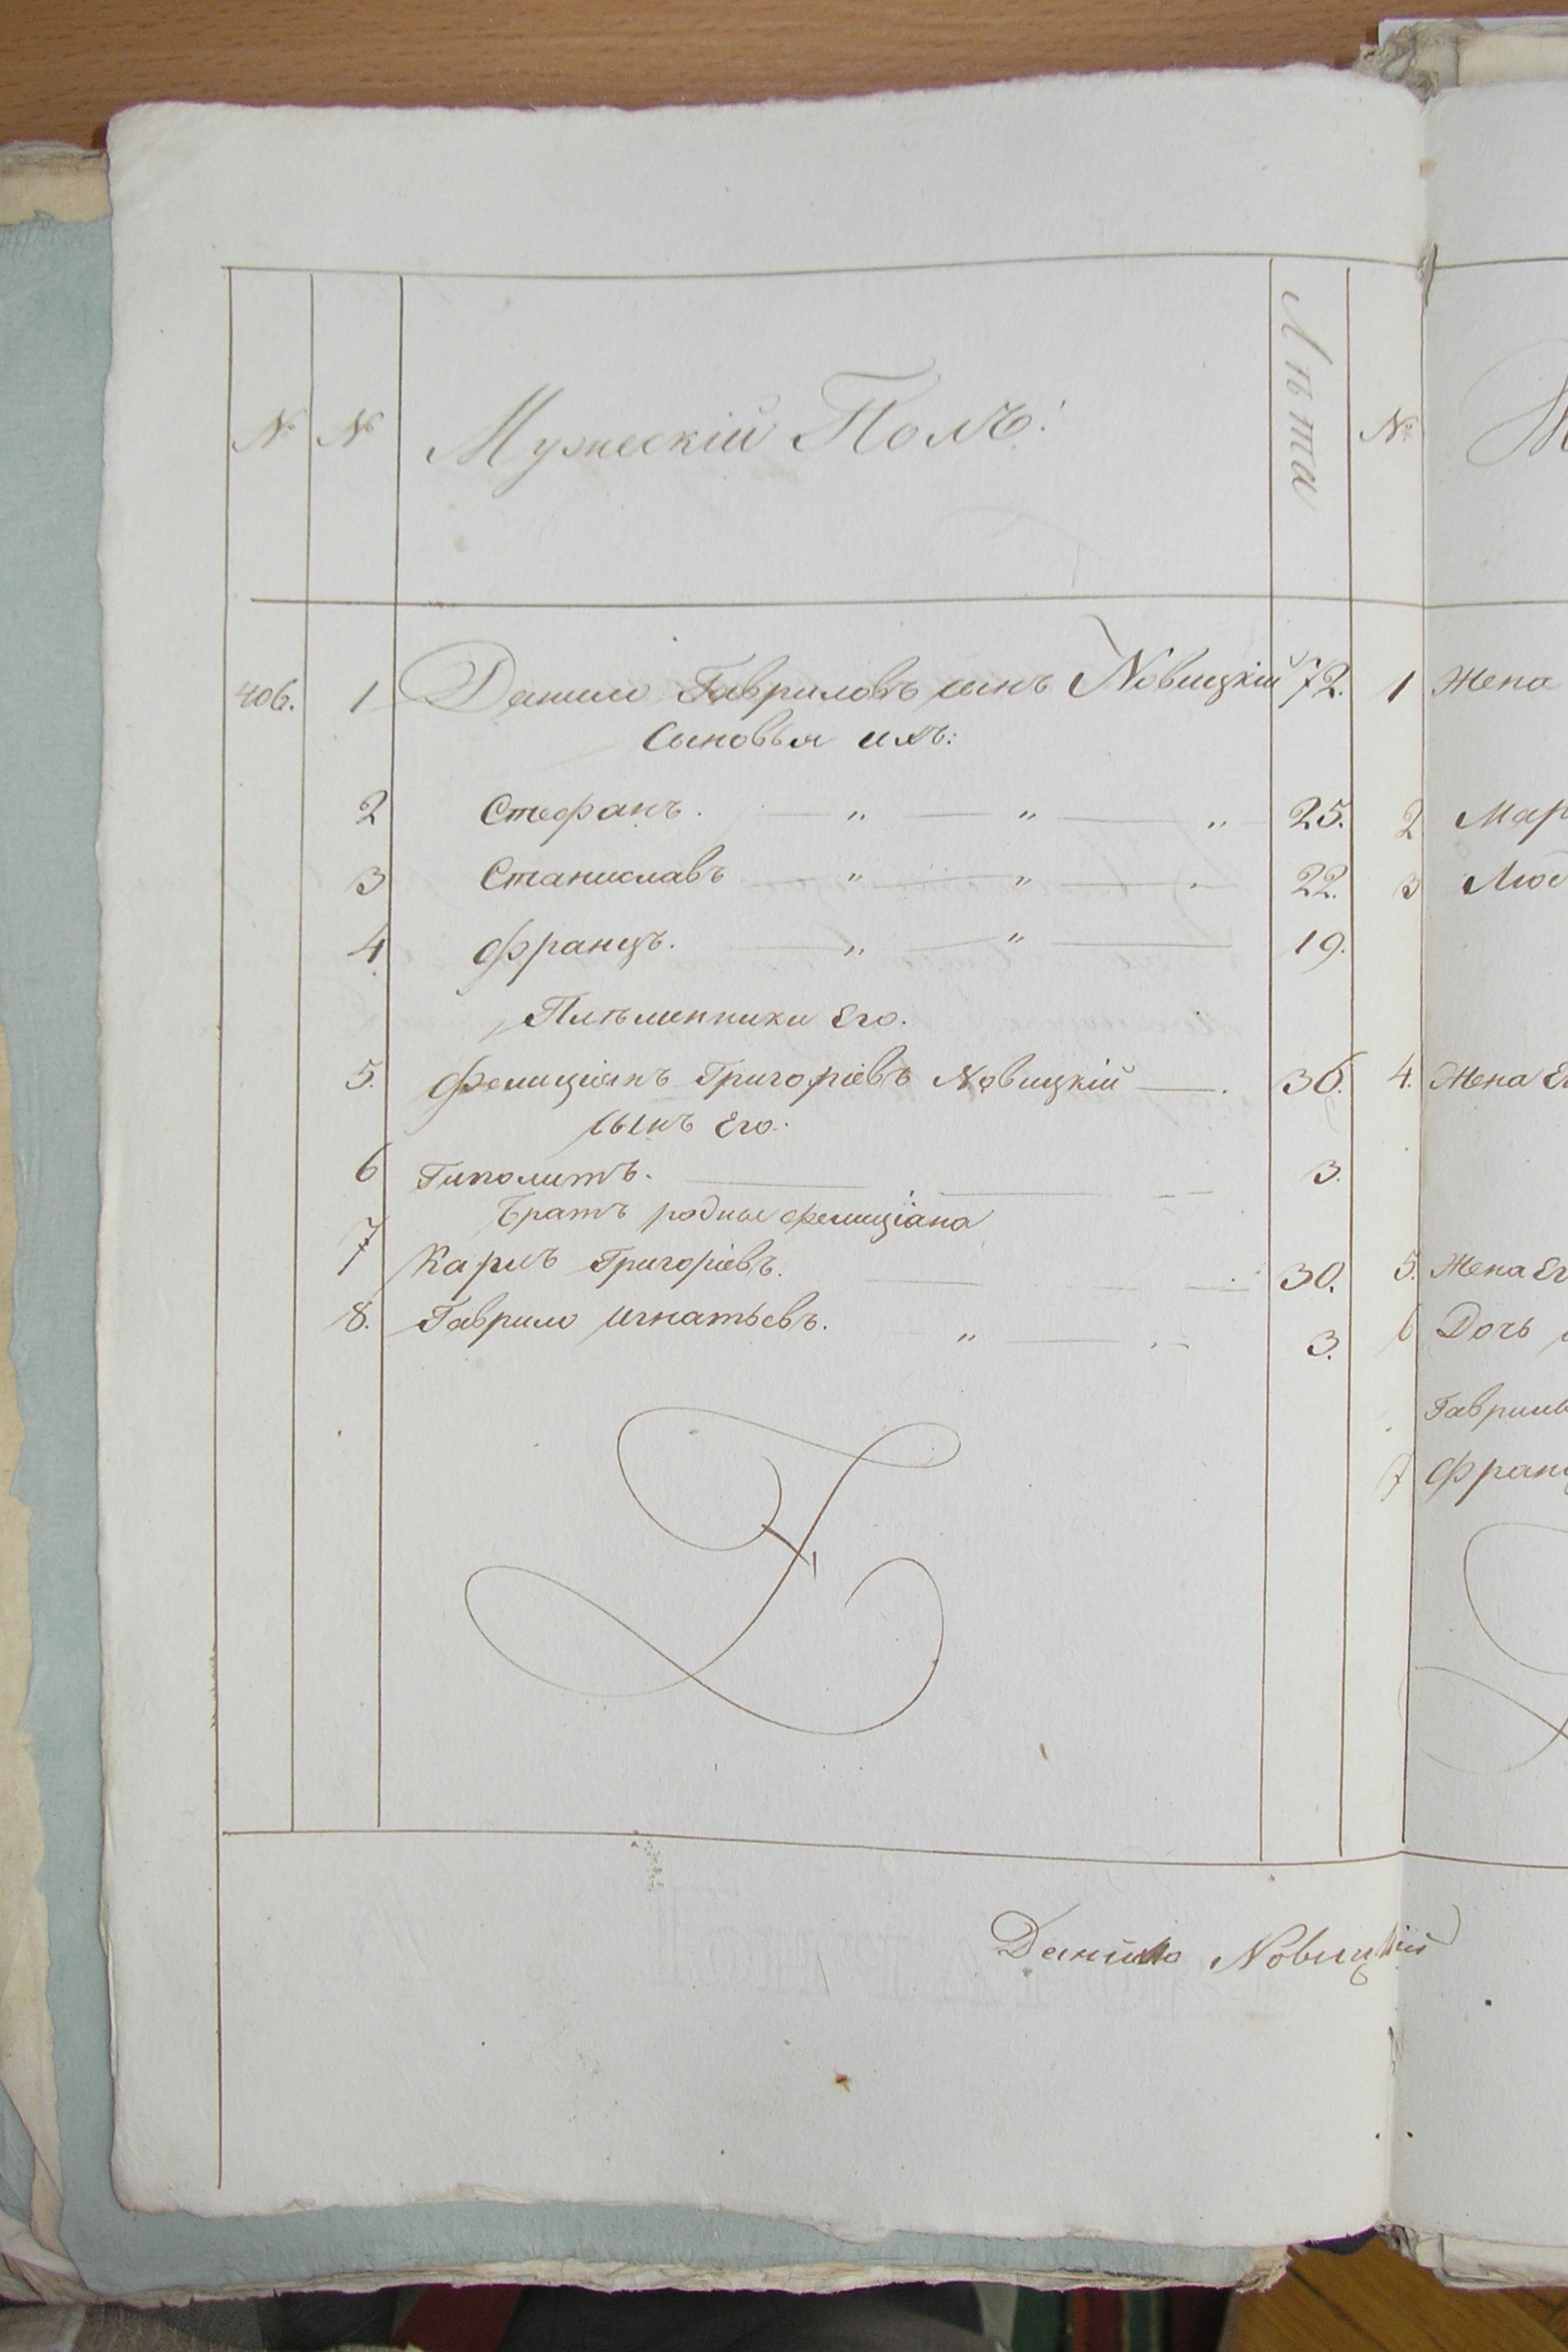 № № Мужескій Полъ: Лѣта №
406. 1 Данило Гавриловъ сынъ Новицкій 72. 1 Жена
Сыновья ихъ:
2 Стефанъ. — „ — „ — „ 25. 2 Мар
3 Станиславъ — „ — „ — . 22. 3 Люб
4 Францъ. — „ — „ — 19.
Племенники Его.
5. Фелиціянъ Григоріевъ Новицкій —. 36. 4. Жена Ег
сынъ Его.
6 Гиполитъ. — 3.
Братъ родные Фелиціана
7 Карлъ Григоріевъ. — 30. 5. Жена Ег
8. Гаврило Игнатьевъ. „ — 3. 6 Дочь
Гаврил
7 Франц
Данило Новицкій